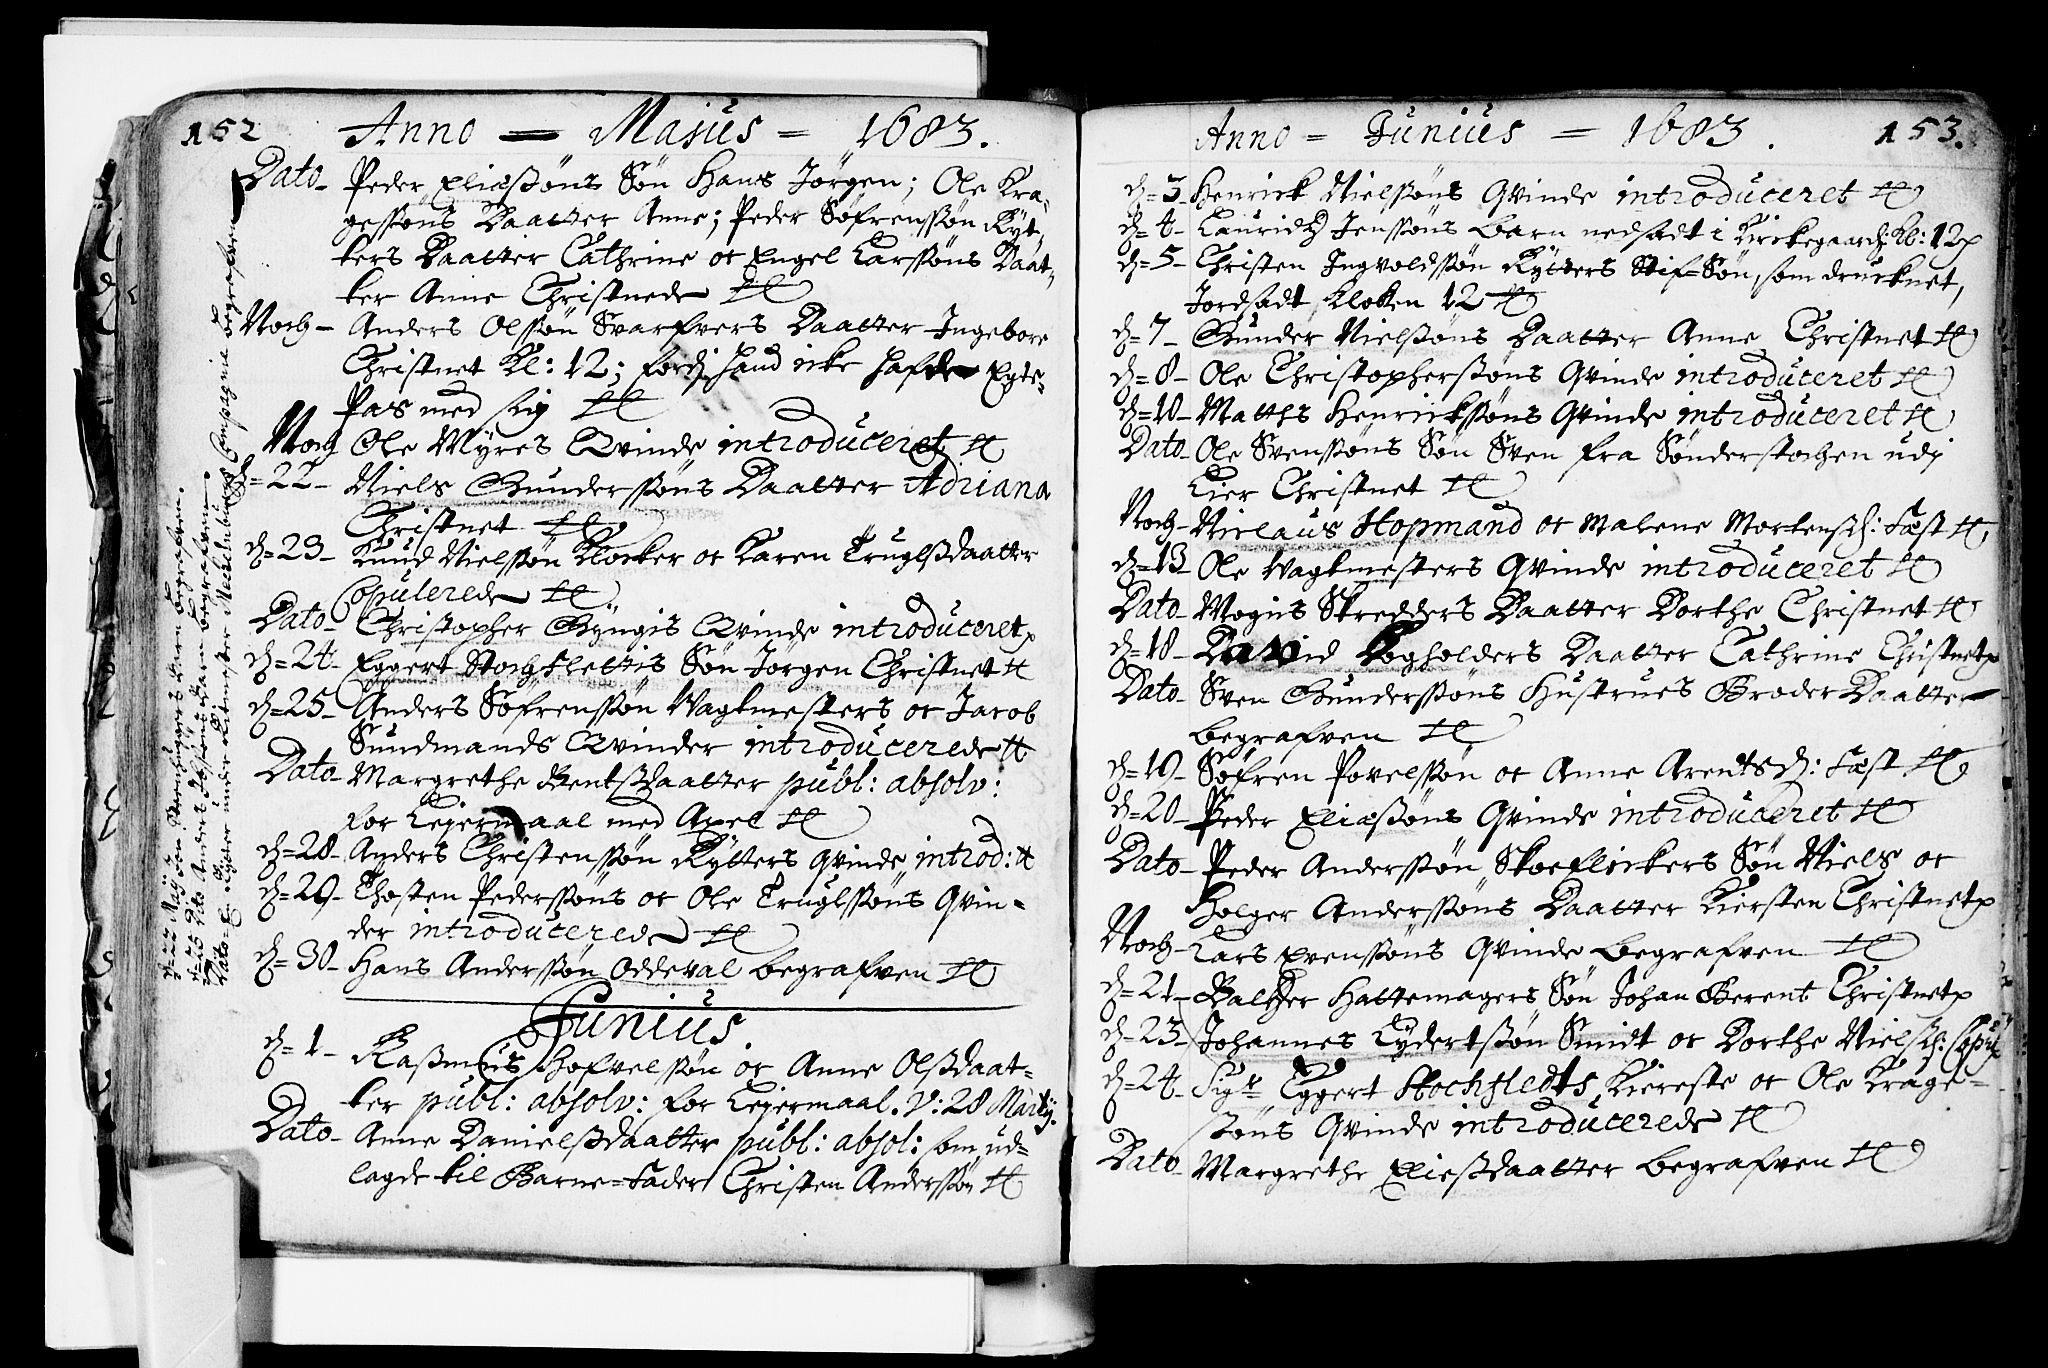 152 Anno = Majus = 1683.
Dato - Peder Eliæssøns Søn Hans Jörgen; Ole Kra-
gessøns Daatter Anne; Peder Söfrenssøn Ryt-
ters Daatter Cathrine oc Engel Larssøns Daat-
ter Anne Christnede
Noch - Anders Olssøn Svarfvers Daatter Ingebore
Christnet Kl: 12; fordj hand icke hafde Egte-
Pas med sig
Noch Ole Myres Qvinde introduceret
d = 22 - Niels Gunderssøns Daatter Adriana
Christnet
d = 23 - Knud Nielssøn Klocker oc Karen Truglssdaatter
Copulerede
Dato - Christopher Gyngis Qvinde introduceret
d = 24 - Eggert Stochflettis Søn Jörgen Christnet
d = 25 - Anders Söfrenssøn Vagtmesters oc Jacob
Sundmands Qvinder introducerede
Dato - Margrethe Bentssdaatter publ: absolv:
for Lejermaal med Axel
d = 28 - Anders Christenssøn Rytters Qvinde introd:
d = 29 - Thosten Pederssøns oc Ole Truglssøns Qvin-
der introducerede
d = 30 - Hans Anderssøn Oddeval begrafven
Junius
d = 1 - Rassmus Hofvelssøn oc Anne Olssdaat-
ter publ: absolv: for Lejermaal. V: 28 Martij.
Dato - Anne Danielssdaatter publ: absol: som ud-
lagde til Barne-Fader Christen Anderssøn
d = 22 Maij barn begrafven.
d = 25 Dito Anders barn begrafven.
Dato under Ritmester Mecklenburgs Compagnie begrafven
Anno = Junius = 1683. 153.
d = 3 - Henrick Nielssøns Qvinde introduceret
d = 4 - Lauridz Jenssøns barn nedsadt i Kirckegaard: Kl: 12
d = 5 - Christen Ingvoldssøn Rytters Stif-Søn, som drucknet,
Jordsadt Klocken 12
d = 7 - Gunder Nielssøns Daatter Anne Christnet
d = 8 - Ole Christopherssøns Qvinde introduceret
d = 10 - Matths Henrickssøns Qvinde introduceret
Dato - Ole Svenssøns Søn Sven fra Sønderstochen udj
Lier Christnet
Noch - Niclaus Hopmand oc Malene Mortensd: Fæst
d = 13 - Ole Vagtmesters Qvinde introduceret
Dato - Mogns Skredders Daatter Dorthe Christnet
d = 18 - David Bogholders Daatter Cathrine Christnet
Dato - Sven Gunderssøns Hustrues Broder Daatter
begrafven
d = 19 - Söfren Povelssøn oc Anne Arentsd: Fæst
d = 20 - Peder Eliæssøns Qvinde introduceret
Dato - Peder Anderssøn Skoeflickers Søn Niels oc
Holger Anderssøns Daatter Kiersten Christnet
Noch - Lars Evenssøns Qvinde begrafven
d = 21 - Baltzer Hattemagers Søn Johan Berent Christnet
d = 23 - Johannes Lydertssøn Smidt oc Dorthe Nielsd: Copul
d = 24 - Sigr Eggert Stochfledts Kiereste oc Ole Krage-
støns Qvinde introducerede
Dato - Margrethe Eliessdaatter begrafven